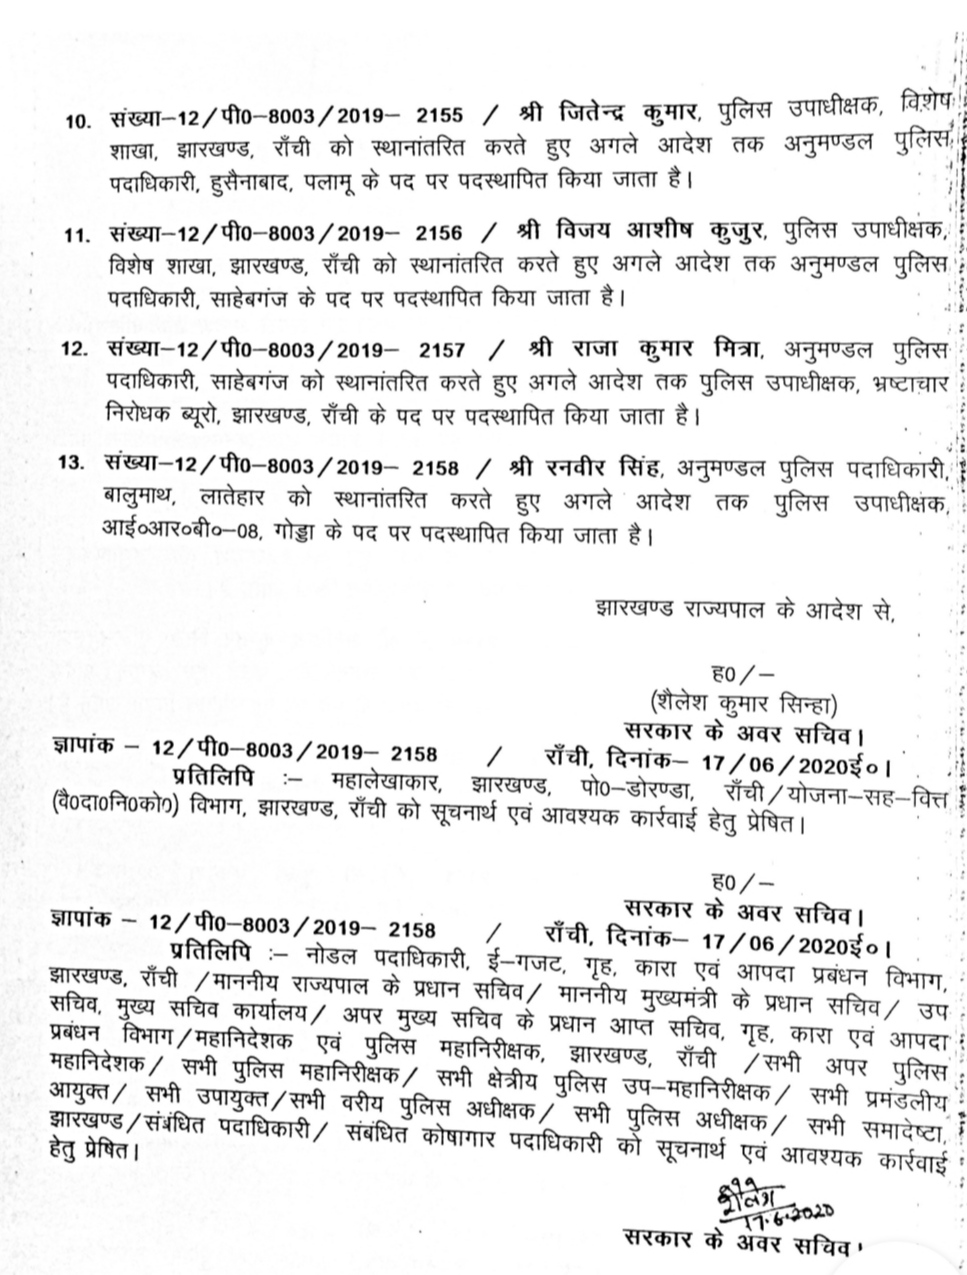 10. संख्या–12/पी0–8003/2019– 2155 / श्री जितेन्द्र कुमार, पुलिस उपाधीक्षक, विशेष
शाखा, झारखण्ड, राँची को स्थानांतरित करते हुए अगले आदेश तक अनुमण्डल पुलिस
पदाधिकारी, हुसैनाबाद, पलामू के पद पर पदस्थापित किया जाता है।
11. संख्या–12/पी0–8003/2019– 2156 / श्री विजय आशीष कुजुर, पुलिस उपाधीक्षक,
विशेष शाखा, झारखण्ड, राँची को स्थानांतरित करते हुए अगले आदेश तक अनुमण्डल पुलिस
पदाधिकारी, साहेबगंज के पद पर पदस्थापित किया जाता है।
12. संख्या–12/पी0–8003/2019– 2157 / श्री राजा कुमार मित्रा, अनुमण्डल पुलिस
पदाधिकारी, साहेबगंज को स्थानांतरित करते हुए अगले आदेश तक पुलिस उपाधीक्षक, भ्रष्टाचार
निरोधक ब्यूरो, झारखण्ड, राँची के पद पर पदस्थापित किया जाता है।
13. संख्या–12/पी0–8003/2019– 2158 / श्री रनवीर सिंह, अनुमण्डल पुलिस पदाधिकारी,
बालुमाथ, लातेहार को स्थानांतरित करते हुए अगले आदेश तक पुलिस उपाधीक्षक,
आई०आर०बी०–08, गोड्डा के पद पर पदस्थापित किया जाता है।
झारखण्ड राज्यपाल के आदेश से,
ह0/–
(शैलेश कुमार सिन्हा)
सरकार के अवर सचिव।
ज्ञापांक – 12/पी0–8003/2019– 2158 / राँची, दिनांक– 17/06/2020ई०।
प्रतिलिपि :– महालेखाकार, झारखण्ड, पो0–डोरण्डा, राँची/योजना–सह–वित्त
(वै0दा0नि0को0) विभाग, झारखण्ड, राँची को सूचनार्थ एवं आवश्यक कार्रवाई हेतु प्रेषित।
ह0/–
सरकार के अवर सचिव।
ज्ञापांक – 12/पी0–8003/2019– 2158 / राँची, दिनांक– 17/06/2020ई०।
प्रतिलिपि :– नोडल पदाधिकारी, ई–गजट, गृह, कारा एवं आपदा प्रबंधन विभाग,
झारखण्ड, राँची /माननीय राज्यपाल के प्रधान सचिव/ माननीय मुख्यमंत्री के प्रधान सचिव/ उप
सचिव, मुख्य सचिव कार्यालय/ अपर मुख्य सचिव के प्रधान आप्त सचिव, गृह, कारा एवं आपदा
प्रबंधन विभाग/महानिदेशक एवं पुलिस महानिरीक्षक, झारखण्ड, राँची /सभी अपर पुलिस
महानिदेशक/ सभी पुलिस महानिरीक्षक/ सभी क्षेत्रीय पुलिस उप–महानिरीक्षक/ सभी प्रमंडलीय
आयुक्त/ सभी उपायुक्त/सभी वरीय पुलिस अधीक्षक/ सभी पुलिस अधीक्षक/ सभी समादेष्टा,
झारखण्ड/संबंधित पदाधिकारी/ संबंधित कोषागार पदाधिकारी को सूचनार्थ एवं आवश्यक कार्रवाई
हेतु प्रेषित।
शैलेश
17.6.2020
सरकार के अवर सचिव।